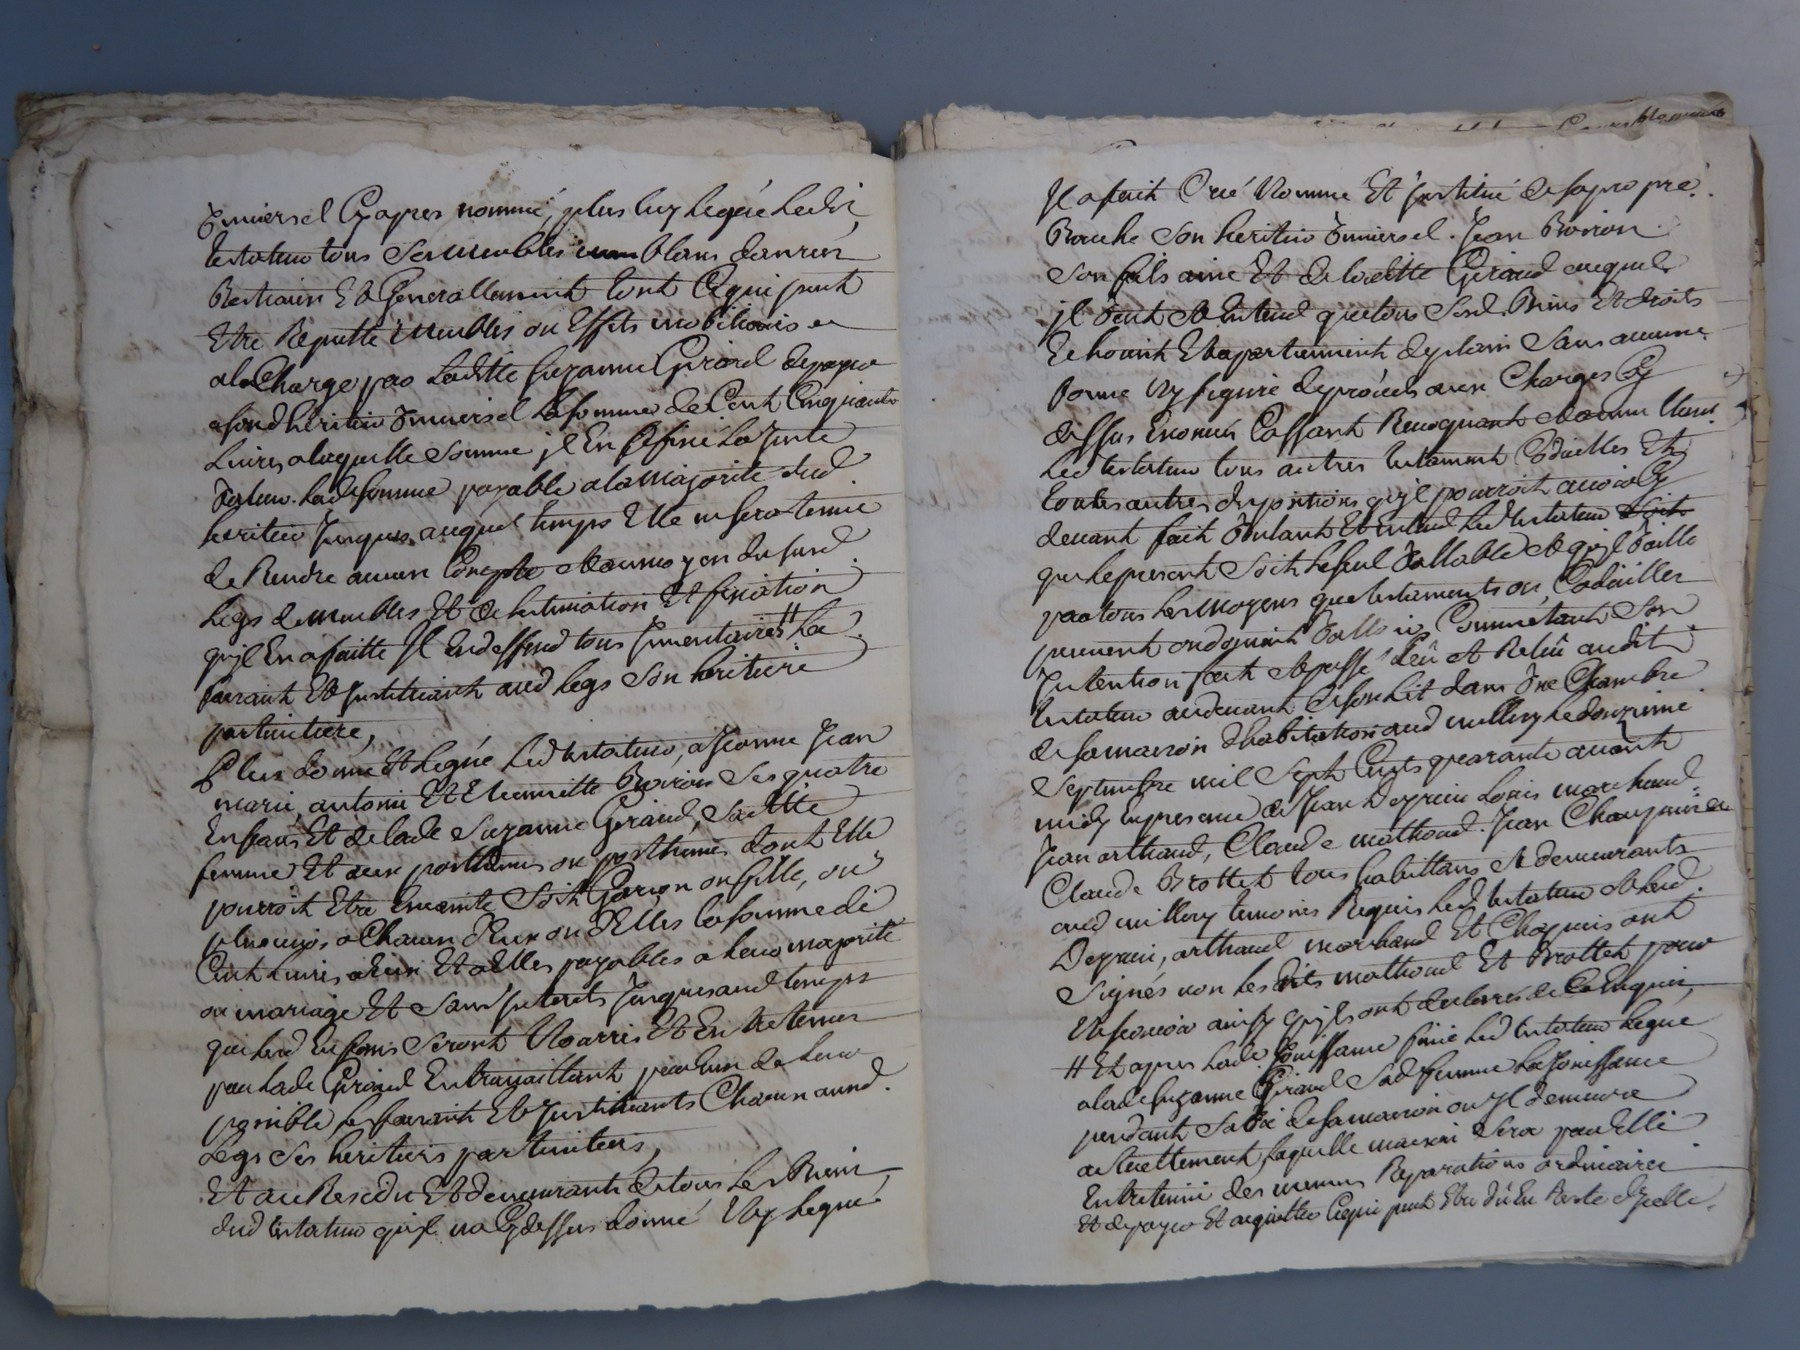 universel Cy apres nommé, plus luy legue ledit
testateur tous ses meubles meublans danrées
Bestiaux Et Generallement tout Ce qui peut
Etre Reputté meubles ou Effets mobiliaires et
a la Charge par Laditte Suzanne Girard de payer
a sond heritier universel la somme de Cent Cinquante
Livres a laquelle somme il En a fixé La juste
valeur. Lade somme payable a la majorité dud
heritier jusques auquel temps Elle ne sera tenue
de Rendre aucun Compte et au moyen du surd
Legs de meubles Et de lestimation Et fixation
qu'il En a faitte Il En deffend tous Jnventaires # La
faisant Et Jnstituant aud legs son heritiere
particuliere,
Plus donne Et Legue Led testateur, a Jeanne Jean
marie, antoine Et Etiennette Boiron ses quatre
Enfans Et de lade Suzanne Giraud, saditte
femme Et aux posthumes ou posthumes dont Elle
pourroit Etre Enceinte soit Garçon ou fille, ou
plusieurs a Chacun d'Eux ou d'Elles la somme de
Cent Livres a Eux Et a Elles payables a leur majorité
ou mariage Et sans Jnterets Jusques aud temps
que lesd Enfans seront Nourris Et Entretenus
par lade Giraud En travaillant pour Eux de leur
possible, les faisant Et Jnstituants Chacun aux d.
Legs ses heritiers particuliers,
Et au Residu Et demeurants de tous Les Biens
dud testateur qu'il n'a Cy dessus donné Ny Legué
Il a fait Créé Nommé Et Jnstitué de sa propre
Bouche son heritier universel. Jean Boiron
son fils ainé Et de laditte Giraud auquel
il veut Et Entend que tous sesd. Biens Et droits
Echoient Et apartiennent de plain sans aucune
forme Ny figure de procès aux Charges Cy
dessus Enoncés Cassant Revoquant Et annullant
Led testateur tous autres testament Codicilles Et
toutes autres dispositions qu'il pourroit avoir Cy
devant fait Voulant Et Entend Led testateur
que le present soit le seul Vallable Et qu'il Vaille
par tous les moyens que testaments ou Codicilles
peuvent ou doivent Valloir Comme étant son
Jntention fait Et passé Leû et Relûe audit
testateur au devant de son Lit dans une Chambre
de sa maison d'habitation aud millery le douzieme
Septembre mil Sept Cents quarante avant
midy En presence de Jean Deprein Louis marchand
Jean arthaud, Claude mathoud. Jean Chaupuis
Claude Brottet tous habittans Et demeurants
aud millery temoins Requis Led testateur Et lesd.
Deprein, arthaud marchand Et Chapuis ont
Signés non les dits mathoud Et Brottet pour
Ne scavoir ainsy qu'ils ont declarés de Ce Enquis,
# Et apres Lade Jouissance finie Led testateur legue
a lade Suzanne Giraud Sad femme La Jouissance
pendant sa Vie de sa maison ou Il demeure
actuellement laquelle maison sera par Elle
Entretenue des menues Reparations ordinaires
Et de payer Et acquitter Ce qui peut Etre dû En Reste d'Icelle.